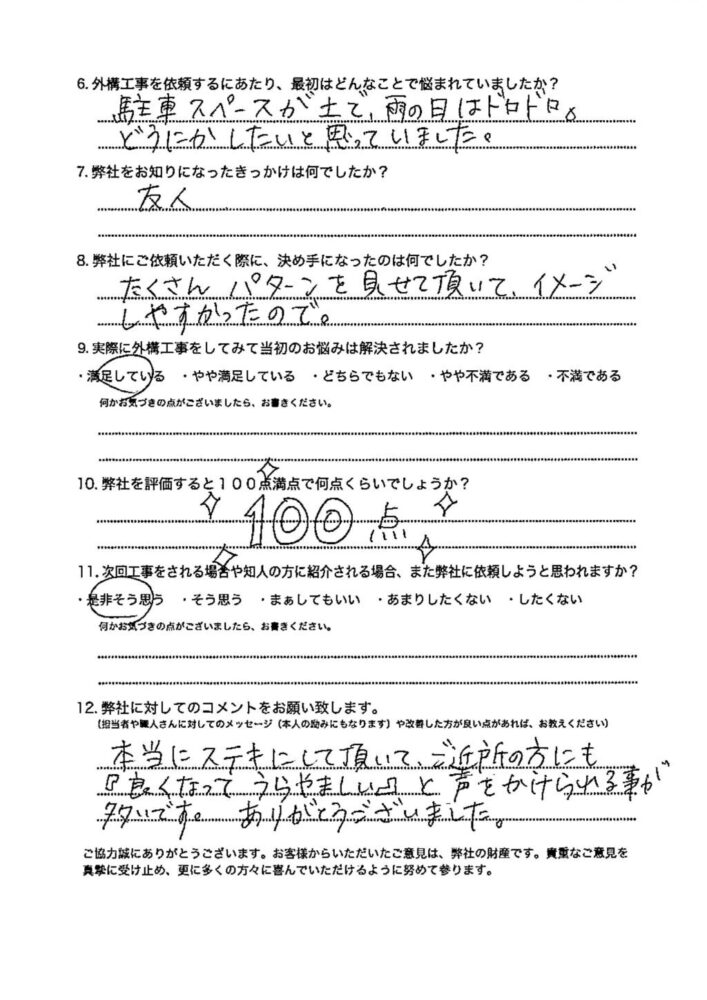 6. 外構工事を依頼するにあたり、最初はどんなことで悩まれていましたか？
駐車スペースが土で、雨の日はドロドロ。
どうにかしたいと思っていました。
7. 弊社をお知りになったきっかけは何でしたか？
友人
8. 弊社にご依頼いただく際に、決め手になったのは何でしたか？
たくさんパターンを見せて頂いて、イメージ
しやすかったので。
9. 実際に外構工事をしてみて当初のお悩みは解決されましたか？
・満足している ・やや満足している ・どちらでもない ・やや不満である ・不満である
何かお気づきの点がございましたら、お書きください。
10. 弊社を評価すると１００点満点で何点くらいでしょうか？
100点
11. 次回工事をされる場合や知人の方に紹介される場合、また弊社に依頼しようと思われますか？
・是非そう思う ・そう思う ・まぁしてもいい ・あまりしたくない ・したくない
何かお気づきの点がございましたら、お書きください。
12. 弊社に対してのコメントをお願い致します。
（担当者や職人さんに対してのメッセージ（本人の励みにもなります）や改善した方が良い点があれば、お教えください）
本当にステキにして頂いて、ご近所の方にも
『良くなってうらやましい』と声をかけられる事が
多いです。ありがとうございました。
ご協力誠にありがとうございます。お客様からいただいたご意見は、弊社の財産です。貴重なご意見を
真摯に受け止め、更に多くの方々に喜んでいただけるように努めて参ります。